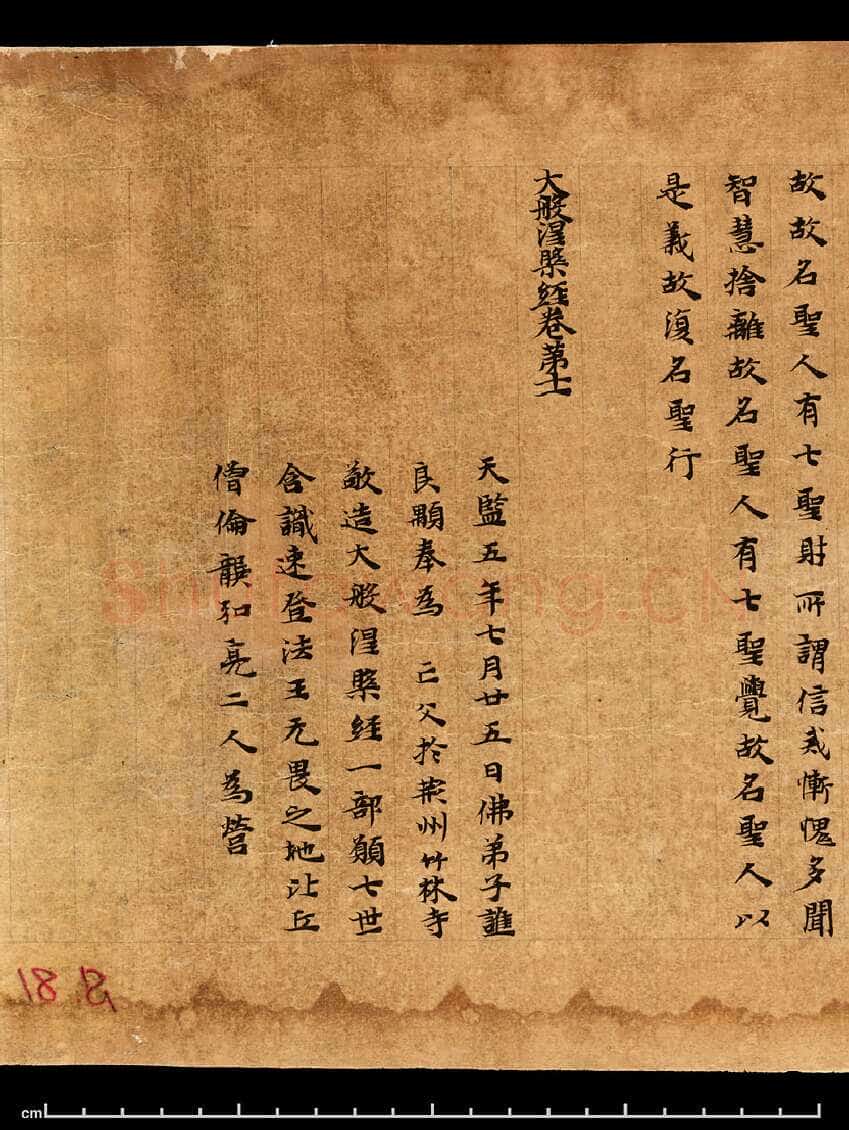 故故名聖人有七聖財所謂信戒慚愧多聞
智慧捨離故名聖人有七聖覺故名聖人以
是義故復名聖行
大般涅槃經卷第十一
天監五年七月廿五日佛弟子譙
良顒奉為 亡父於荊州竹林寺
敬造大般涅槃經一部願七世
含識速登法王无畏之地比丘
僧倫龔弘亮二人為營
S. 81
cm